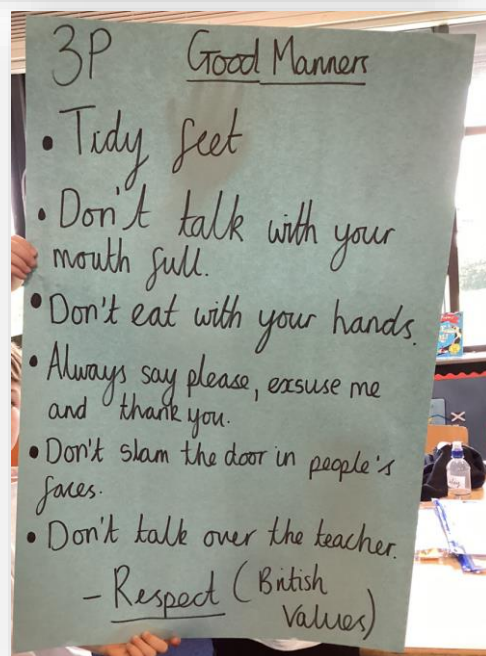 3P Good Manners
• Tidy feet
• Don't talk with your
mouth full.
• Don't eat with your hands.
• Always say please, exsuse me
and thank you.
• Don't slam the door in people's
faces.
• Don't talk over the teacher.
- Respect (British
Values)